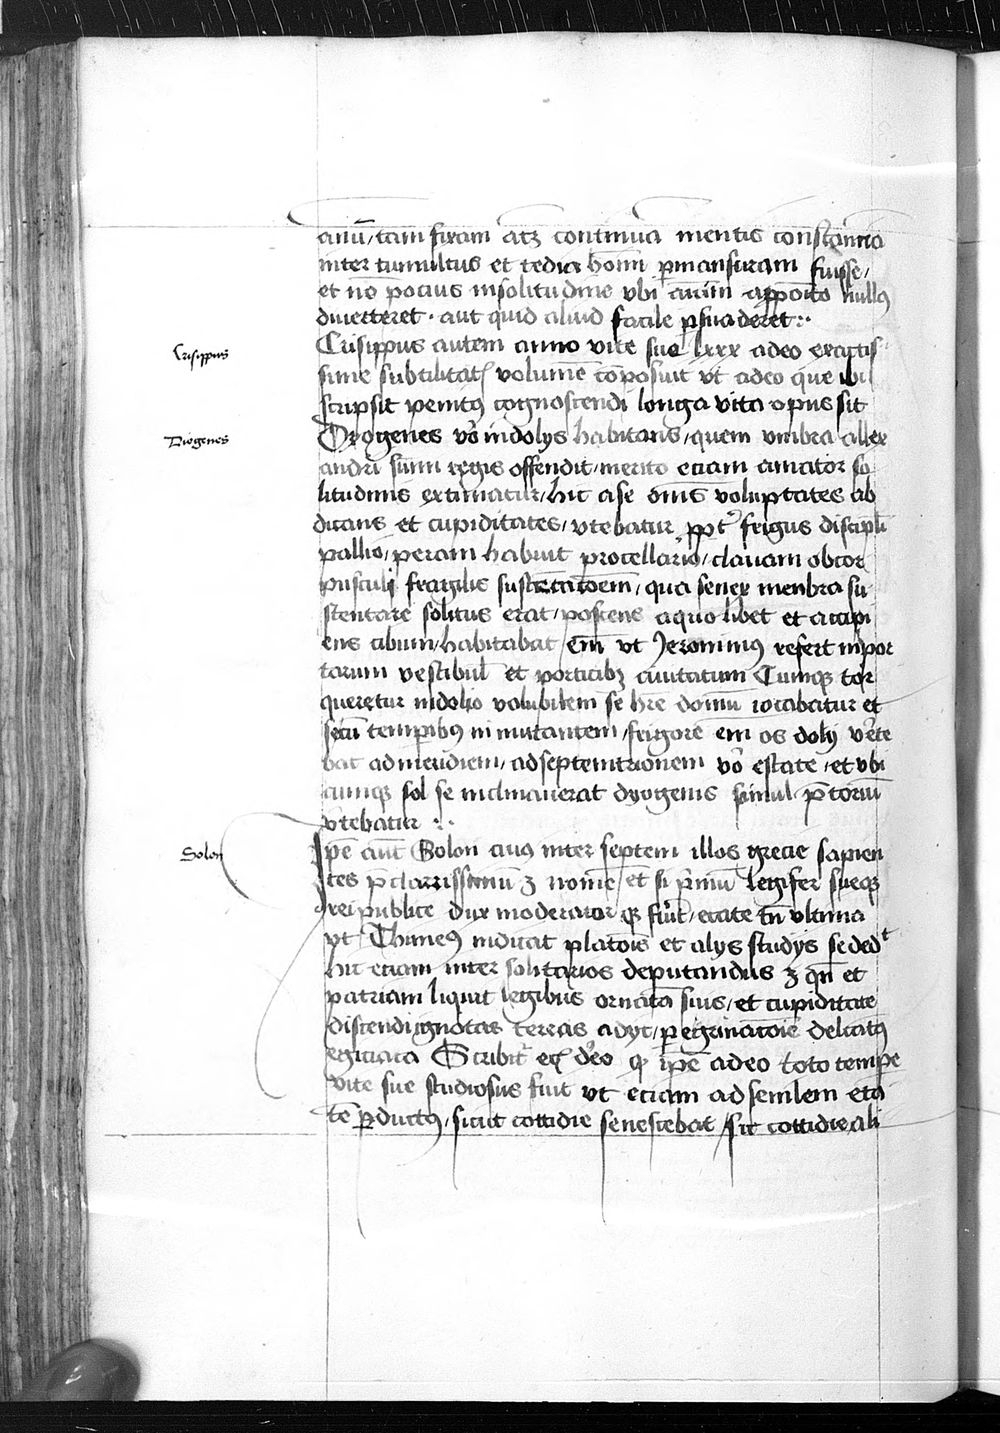 anīū, tam firam atqꝫ continua mentis constantia
inter tumultus et tedia homī permansuram fuisse,
et nō pocius insolitudine vbi autim apposito nullꝰ
diuerteret . aut quid aliud facile persuaderet :·
Crisippus
Crisippus autem anno vite sue lxxx adeo exactis
sime subtilitatꝭ volumē cōposuit vt adeo que ibi
scripsit penitꝰ cognoscendi longa vita opus sit
Diogenes
Dyogenes vō indolys habitans, quem vmbra allex
andri sūmi regis offendit, merito eciam amator so
litudinis extimatur, hic a se ōnis voluptates ab
dicans et cupiditates, vtebatur ꝓpt frigus discipli
pallio, peram habuit procellario, clauam obcor
pusculi fragilis sustentatōem, qua senex menbra su
stentare solitus erat, poscens aquolibet et accipi
ens cibum, habitabat em̄ vt Jeronimꝰ refert inpor
tarum vestibul et porticibꝫ ciuitatum Cumqꝫ tor
queretur indolio volubilem se hr̄e domū iocabatur et
secū temporibꝰ inmutantem, frigore em̄ os dolij v̄te
bat admeridiem, adseptemtrionem vō estate, et vbi
cumqꝫ sol se inclinauerat dyogenis simul p̄toriū
vtebatur :·
Solon
Ipē aūt Solon cuiꝰ inter septem illos grecie sapien
tes p̄clarrissimū ꝫ nomē et si p̄mū legifer sueqꝫ
rei publice dux moderator qꝫ fūit, etate tn̄ vltima
vt Thimeꝰ indicat platōis et alys studys se dedt
hic eciam inter solitarios deputandus ꝫ qn̄ et
patriam liquit legibus ornatā suis, et cupiditate
discendi ignotas terras adyt, peregrinatōnē delicatꝰ
egiciaca Scribit̄ eꝭ deo qꝫ ipē adeo toto tempe
vite sue studiosus fuit vt eciam ad senilem eta
tē perductꝰ, sicut cottidie senescebat sic cottidie ali